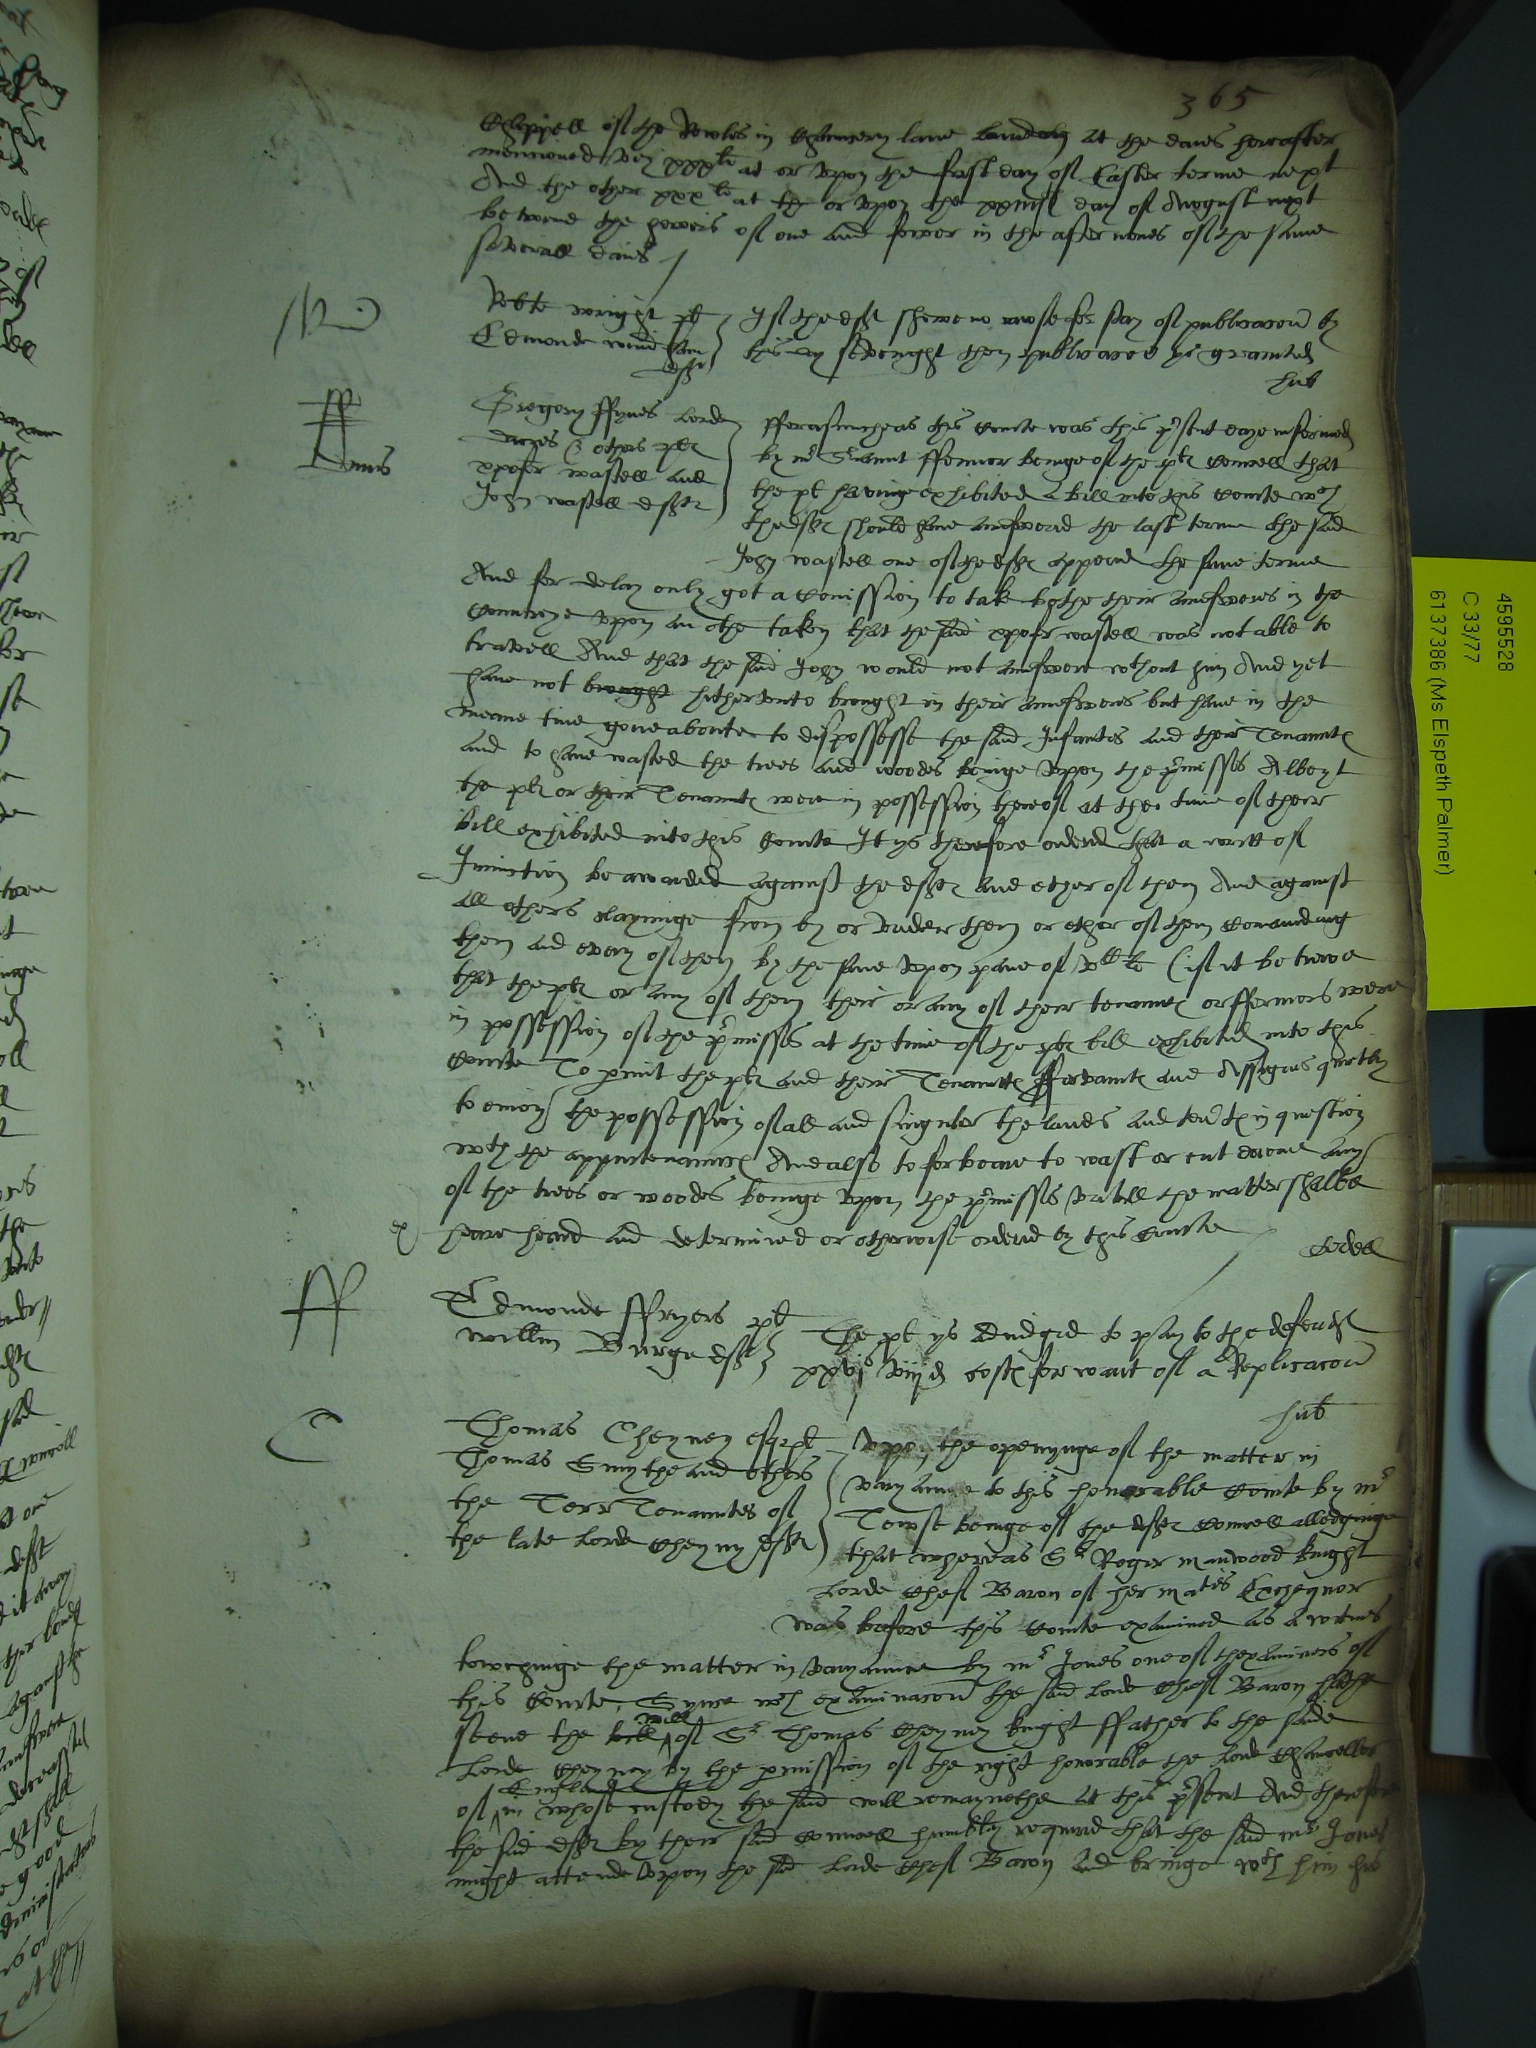 365
Chappell of the Rowles in Chauncery lane at the daies hereafter
mencioned viz xxx li at or vpon the first day of Easter terme next
And the other xxx li at or vpon the day of August next
betwene the howers of one and fower in the after nones of the same
severall daies /
Robte wright pl
Edmonde
deft
If the deft shewe no cause for stay of publicacon by
this day sevenight then publicacon ys graunted
hub
Gregory ffynes Lorde
dacres & others plt
xpofer wastell and
John wastell deftes
Dacres
fforasmuche as this Courte was this pñte daye informed
by mr Seriaunt ffennor beinge of the plt Councell that
the pl havinge exhibited a bill into this Courte wch
the deftes should have answered the last terme the said
John wastell one of the deftes appered the same terme
And for delay only got a Comission to take bothe their answeres in the
Countrye vpon an othe taken that the said xpofer wastell was not able to
travell And that the said John would not answere wthout him And yet
have not brought hithervnto brought in their answeres but have in the
meane time gone aboute to dispossesse the said Infantes and their Tenauntes
and to have wasted the trees and woodes beinge vpon the pmisses Albeyt
the plt or their Tenauntes were in possession thereof at the time of their
bill exhibited into this Courte It ys therefore ordered that a writt of
Iniunction be awarded against the deftes and ether of them And against
all others clayminge from by or vnder them or ether of them Comaunding
them and every of them by the same vpon paine of vC li (if it be trewe
that the plt or any of them their or any of their tenauntes or ffermors were
in possession of the pmisses at the time of the plt bill exhibited into this
Courte To pmit the plt and their Tenauntes ffervantes and Assignes quietly
to enioy the possession of all and singuler the landes and tentes in question
wth the appurtenaunces And also to forbeare to wast or cut downe any
of the trees or woodes beinge vpon the pmisses vntill the matter shalbe
heare heard and determined or otherwise ordered by this Courte
ex
Edmonde ffryers pl
Willm Burge deft
The pl ys Adiudged to pay to the defendt
xxvjs viijd costes for want of a Replicacon
hub
C
Thomas Cheyney esqr pl
Thomas Smythe and others
the Terr Tenauntes of
the late Lorde Cheyny deftes
Vpon the openynge of the matter in
varyaunce to this honorable Courte by mr
Towse beinge of the deftes Councell alledginge
that whereas Sr Roger manwood knight
Lorde Cheif Baron of her maties Exchequor
was before this Courte examined as a witnes
towchinge the matter in varyaunce by mr Jones one of thexaminers of
this Courte, Synce wch examinacon the said Lorde Cheif Baron hathe
seene the bill will of Sr Thomas Cheyney knight ffather to the saide
Lorde Cheyney by the pmission of the right honorable the Lorde Chauncellor
of England in whose custody the said will remaynethe at this pñte And therefore
the said deftes by their said Councell humbly required that the said mr Jones
might attende vpon the said Lorde Cheif Baron and bringe wth him his
4595528
C 33/77
6137386 (Ms Elspeth Palmer)